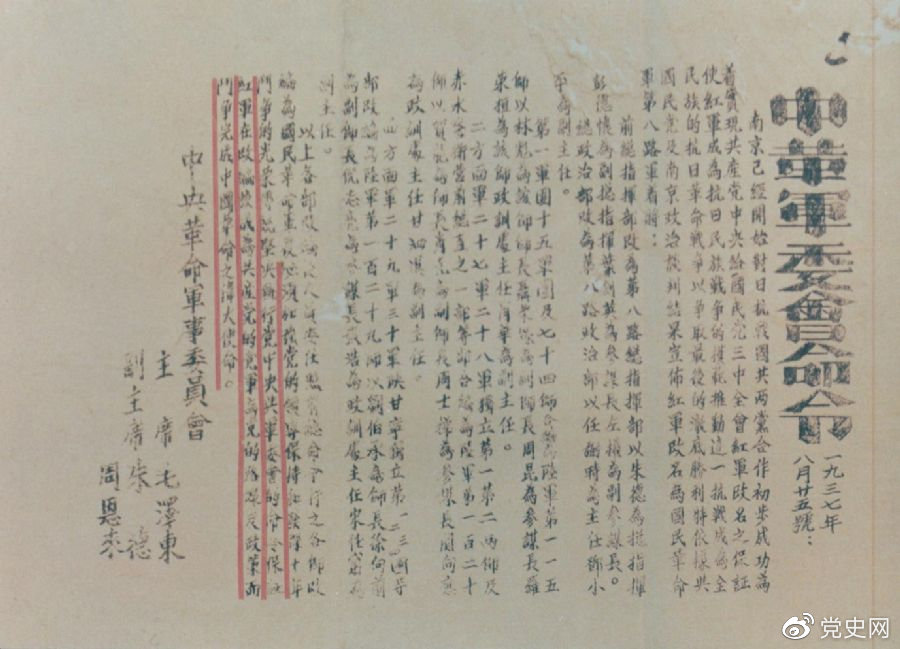 中革軍委會命令
一九三七年
八月廿五號：
南京已經開始對日抗戰國共兩黨合作初步成功為
着實現共産党中央給國民党三中全會紅軍改名之保証
使紅軍成為抗日民族戰爭的模範推動這一抗戰成為全
民族的抗日革命戰爭以爭取最後的澈底勝利特依據共
國民党及南京政治談判結果宣佈紅軍改名為國民革命
軍第八路軍着將：
前總指揮部改為第八路總指揮部以朱德為總指揮
彭德懷為副總指揮葉劍英為參謀長左權為副參謀長。
總政治部改為第八路政治部以任弼時為主任鄧小
平為副主任。
第一軍團十五軍團及七十四師合編為陸軍第一一五
師以林彪為該師師長聶榮臻為副師長周昆為參謀長羅
榮桓為該師政訓處主任肖華為副主任。
二方面軍二十七軍二十八軍獨立第一第二兩師及
赤水警衛營前總直之一部等部合編為陸軍第一百二十
師以賀龍為師長肖克為副師長周士第為參謀長關向應
為政訓處主任甘泗淇為副主任。
四方面軍二十九軍三十軍陝甘寧獨立第一二三四等
部改編為陸軍第一百二十九師以劉伯承為師長徐向前
為副師長倪志亮為參謀長張浩為政訓處主任宋任窮為
副主任。
以上各部改編後人員委任照前總命令行之各部改
編為國民革命軍後必須加強党的領導保持和發揮十年
鬥爭的光榮傳統堅決執行党中央與軍委會的命令保証
紅軍在改編後成為共産党的党軍為党的路線及政策而
鬥爭完成中國革命之偉大使命。
中央革命軍事委員會
主席毛澤東
副主席朱德
周恩来
党史网